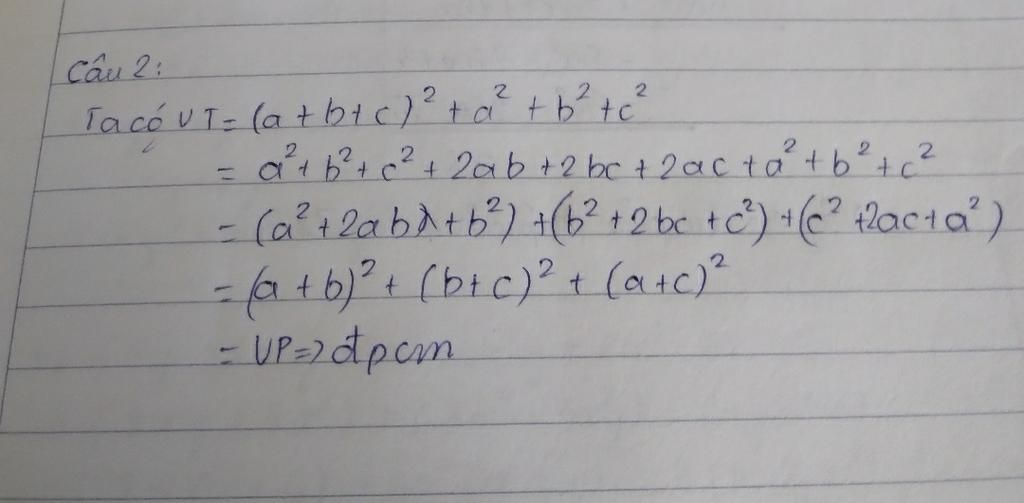 Câu 2:
Ta có VT = (a+b+c)² + a² + b² + c²
= a² + b² + c² + 2ab + 2bc + 2ac + a² + b² + c²
= (a² + 2ab + b²) + (b² + 2bc + c²) + (c² + 2ac + a²)
= (a + b)² + (b + c)² + (a + c)²
= VP => đpcm